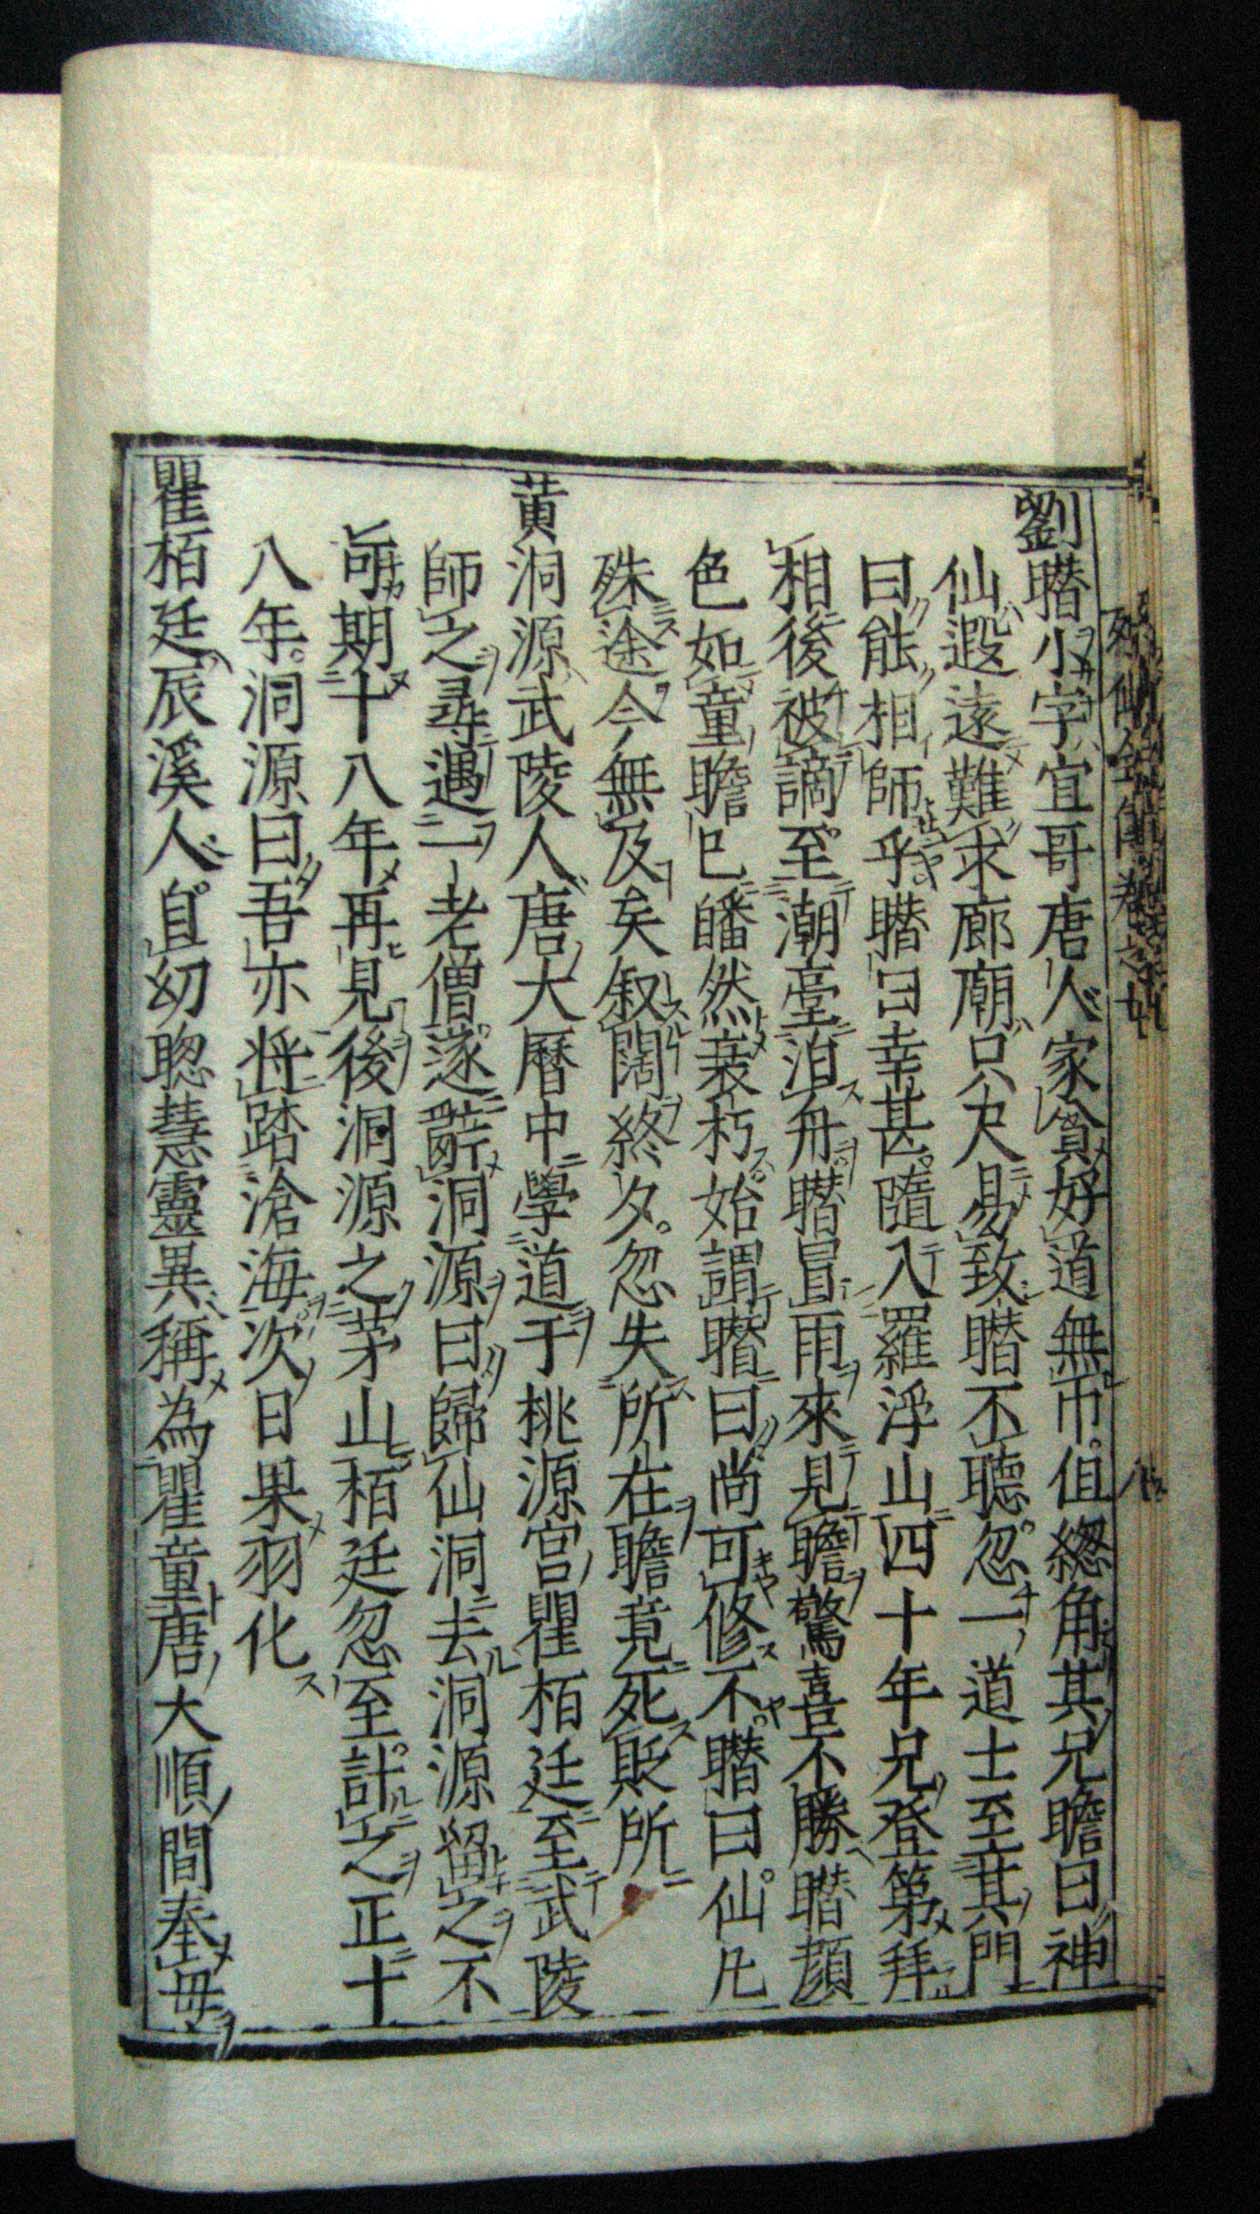 劉䁮小字宜哥唐人家貧好道無巾但緫角其兄瞻曰神
仙遐遠難求廊廟只尺易致䁮不聽忽一道士至其門
曰能相師乎䁮曰幸甚隨入羅浮山四十年兄登第拜
相後被謫至潮臺泊舟䁮冒雨來見瞻驚喜不勝䁮顔
色如童瞻已皤然衰朽始謂䁮曰尚可修不䁮曰仙凡
殊途今無及矣叙闊終夕忽失所在瞻竟死貶所
黄洞源武陵人唐大曆中學道于桃源宫瞿栢廷至武陵
師之尋遇一老僧遂辭洞源曰歸仙洞去洞源留之不
可期十八年再見後洞源之茅山栢廷忽至計之正十
八年洞源曰吾亦將踏滄海次日果羽化
瞿栢廷辰溪人自幼聰慧靈異稱為瞿童唐大順間奉母